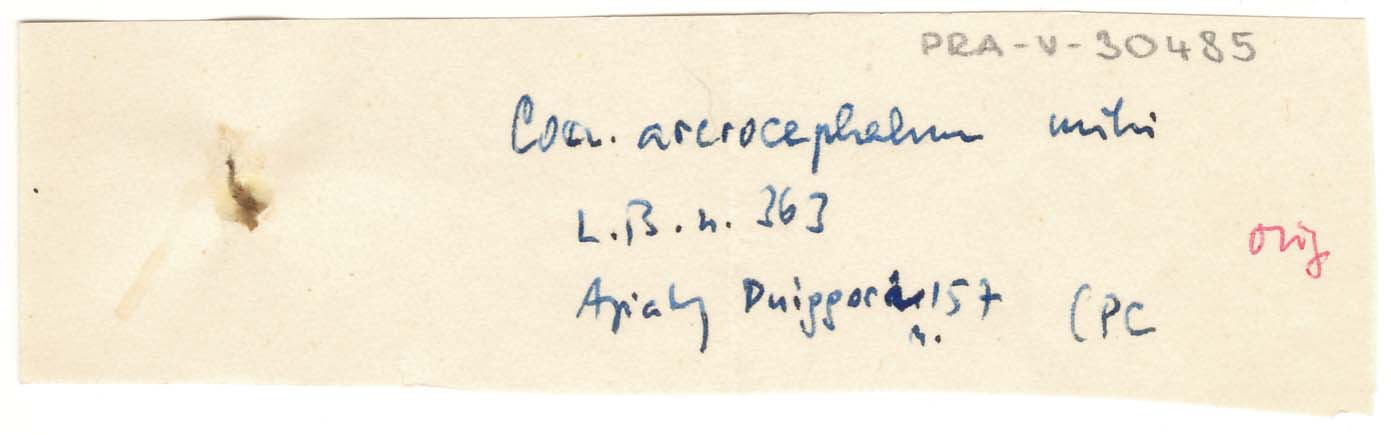 PRA-V-30485
Coen. arcrocephalum mihi
L.B.n. 363
Apiahy Puiggari n. 157 (PC
orig